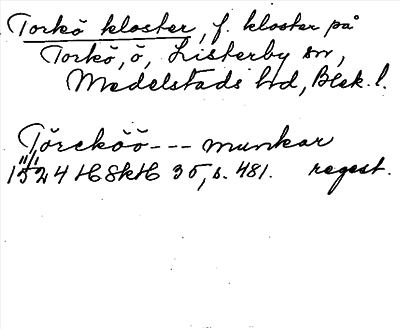 Torkö kloster, f. kloster på
Torkö, ö, Listerby sn,
Medelstads hd, Blek. l.
Törcköö--- munkar
1524 HSkH 35, s. 481. regest.